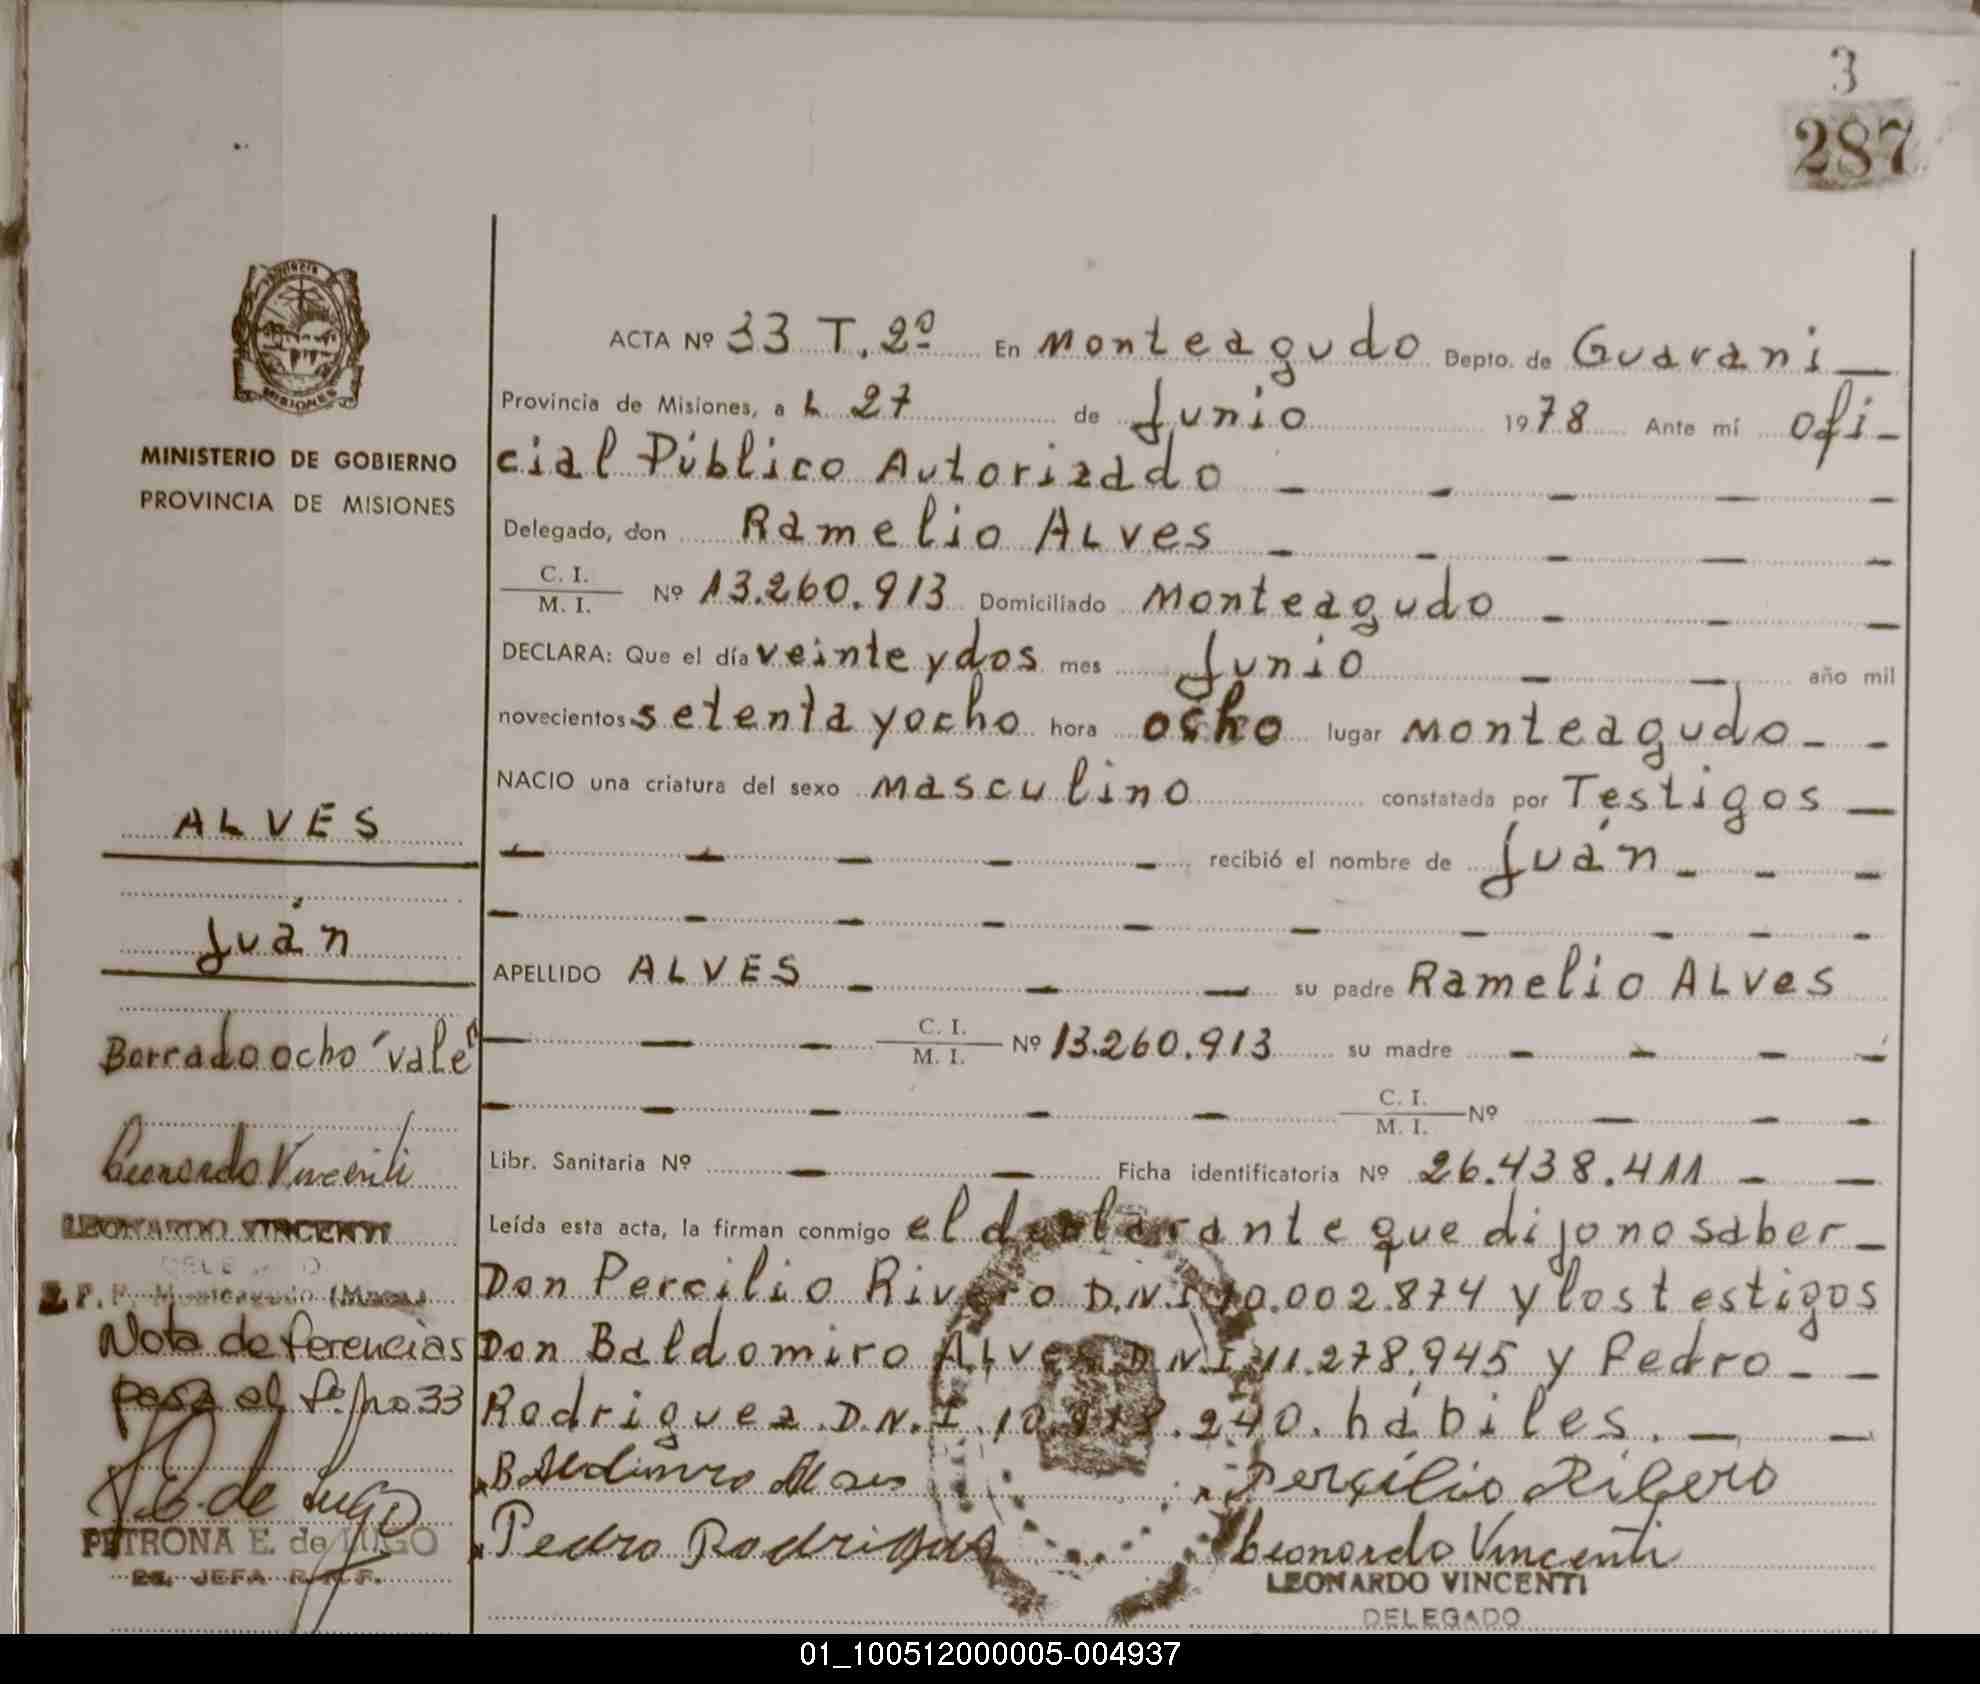 3
287
PROVINCIA
MISIONES
MINISTERIO DE GOBIERNO
PROVINCIA DE MISIONES
ACTA Nº 33 T. 2º En Monteagudo Depto. de Guarani —
Provincia de Misiones, a L 27 de Junio 1978 Ante mí ofi-
cial Público Autorizado — — — — —
Delegado, don Ramelio ALves — — — — —
C. I.
M. I. Nº 13.260.913 Domiciliado Monteagudo — — —
DECLARA: Que el día veinte y dos mes Junio — — año mil
novecientos setenta y ocho hora ocho lugar Monteagudo - -
NACIO una criatura del sexo masculino constatada por Testigos —
— — — — — recibió el nombre de Juán - - -
— — — — — — — — — —
APELLIDO ALVES — — — su padre Ramelio ALves
— — — C. I.
M. I. Nº 13.260.913 su madre — — — —
— — — — — C. I.
M. I. Nº — — —
Libr. Sanitaria Nº — — Ficha identificatoria Nº 26.438.411 — —
Leída esta acta, la firman conmigo el declarante que dijo no saber —
Don Percilio Rivero D.N.I 10.002.874 y los testigos
Don Baldomiro Alves D.N.I 11.278.945 y Pedro - -
Rodriguez D.N.I. .240. hábiles. — —
Pedro
Percilio Ribero
Leonardo Vincenti
LEONARDO VINCENTI
DELEGADO
ALVES
Juán
Borrado ocho "vale"
Leonardo Vincenti
LEONARDO VINCENTI
DELEGADO
Monteagudo
Nota de ferencias
pasa al fº. no 33
E. de Lugo
PETRONA E. de LUGO
2a. JEFA
01_100512000005-004937